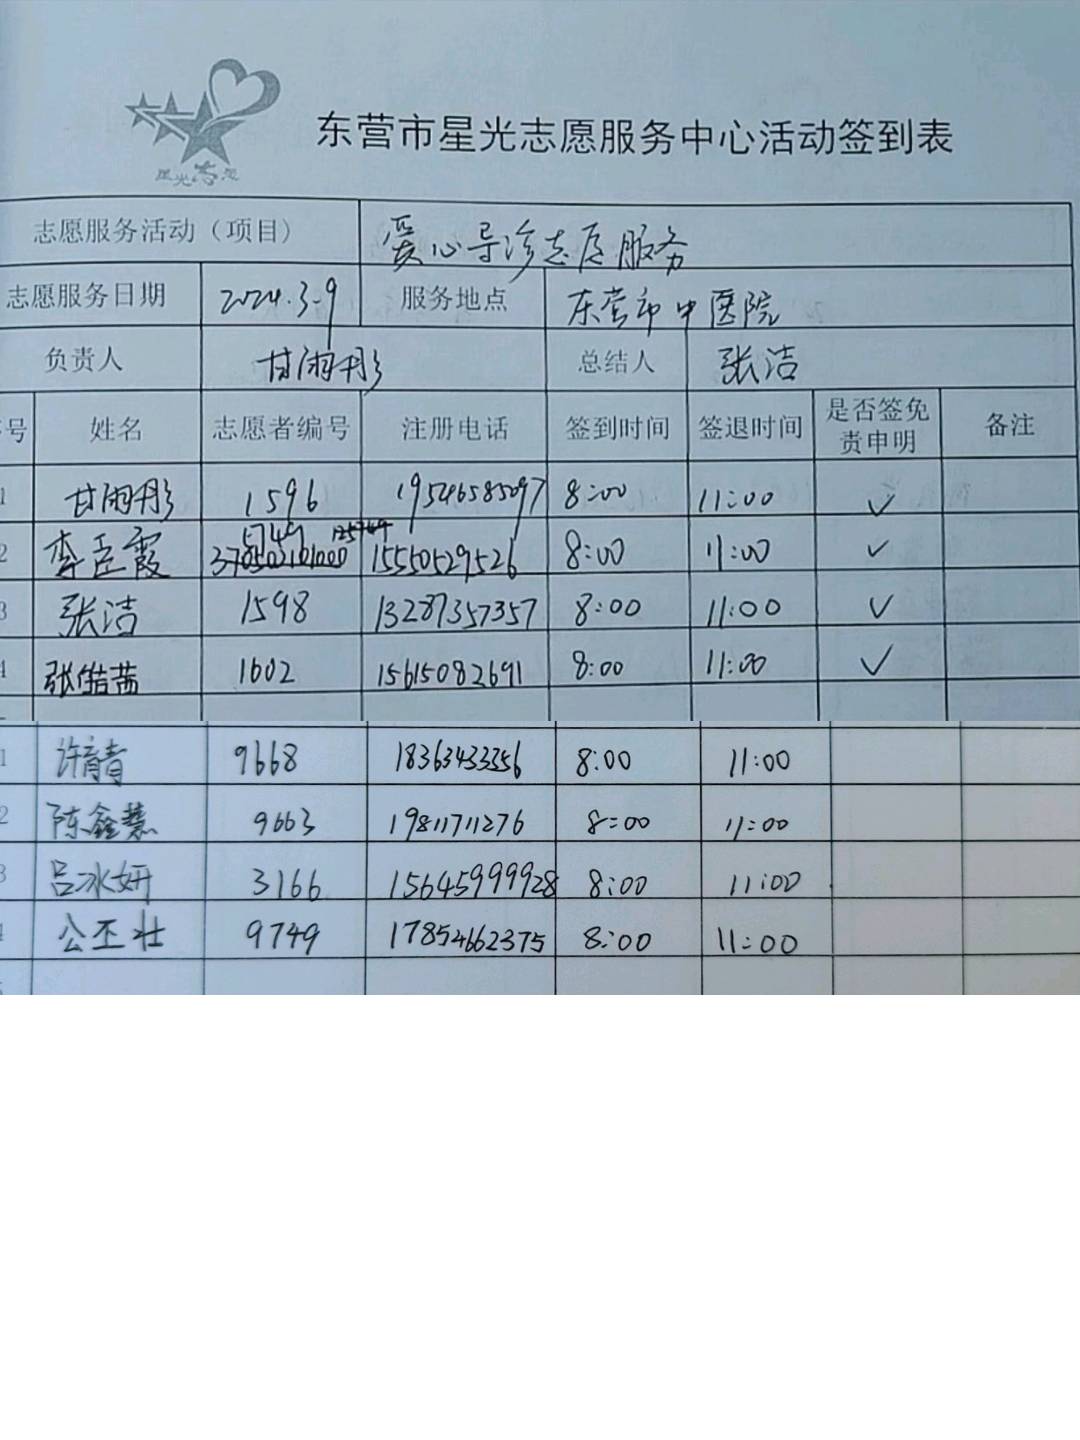 星光志愿
东营市星光志愿服务中心活动签到表
志愿服务活动（项目） 爱心导诊志愿服务
志愿服务日期 2024.3.9 服务地点 东营市中医院
负责人 甘雨彤 总结人 张洁
号 姓名 志愿者编号 注册电话 签到时间 签退时间 是否签免责申明 备注
1 甘雨彤 1596 19546585097 8:00 11:00 ✓
2 李臣霞 5749 15550529526 8:00 11:00 ✓
3 张洁 1598 13287357357 8:00 11:00 ✓
4 张皓茜 1602 15615082691 8:00 11:00 ✓
1 许育青 9668 18363433356 8:00 11:00
2 陈鑫慧 9663 19811711276 8:00 11:00
3 吕冰妍 3166 15645999928 8:00 11:00
4 公丕壮 9749 17854662375 8:00 11:00